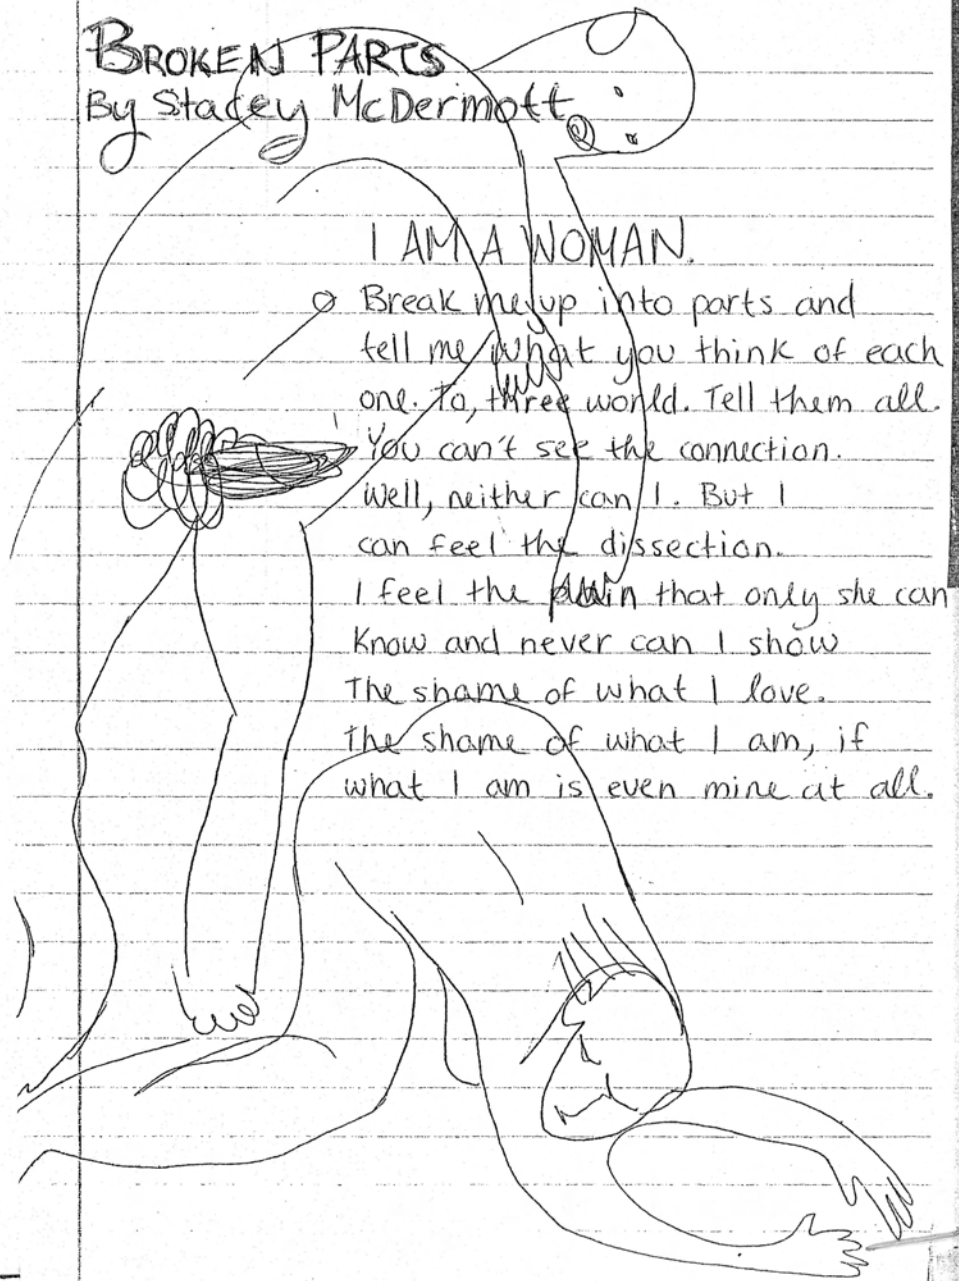 BROKEN PARTS
By Stacey McDermott
I AM A WOMAN.
Break me up into parts and
tell me what you think of each
one. To, three world. Tell them all.
You can't see the connection.
Well, neither can I. But I
can feel the dissection.
I feel the pain that only she can
Know and never can I show
The shame of what I love.
The shame of what I am, if
what I am is even mine at all.